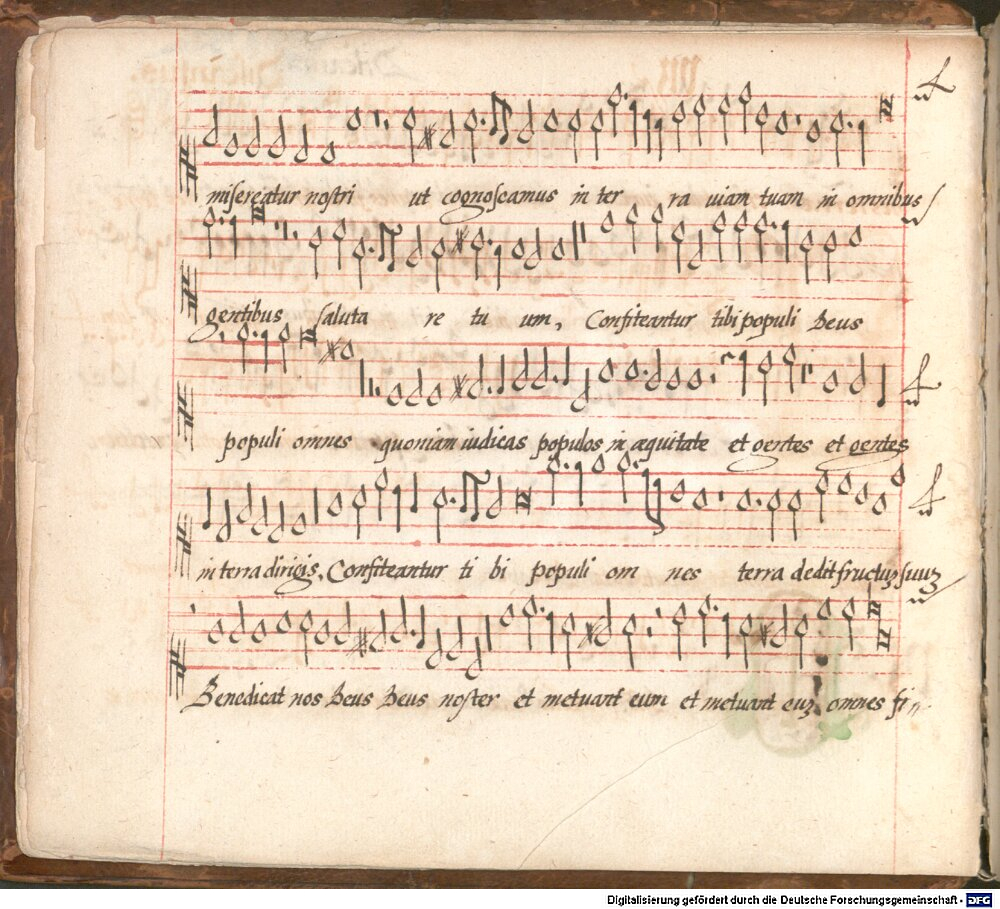 misereatur nostri ut cognoscamus in ter ra uiam tuam in omnibus
gentibus saluta re tu um, Confiteantur tibi populi Deus
populi omnes quoniam iudicas populos in æquitate et gentes et gentes
in terra dirigis, Confiteantur ti bi populi om nes terra dedit fructuȝ suuȝ
Benedicat nos Deus Deus noster et metuant eum et metuant euȝ omnes fi
Digitalisierung gefördert durch die Deutsche Forschungsgemeinschaft - DFG